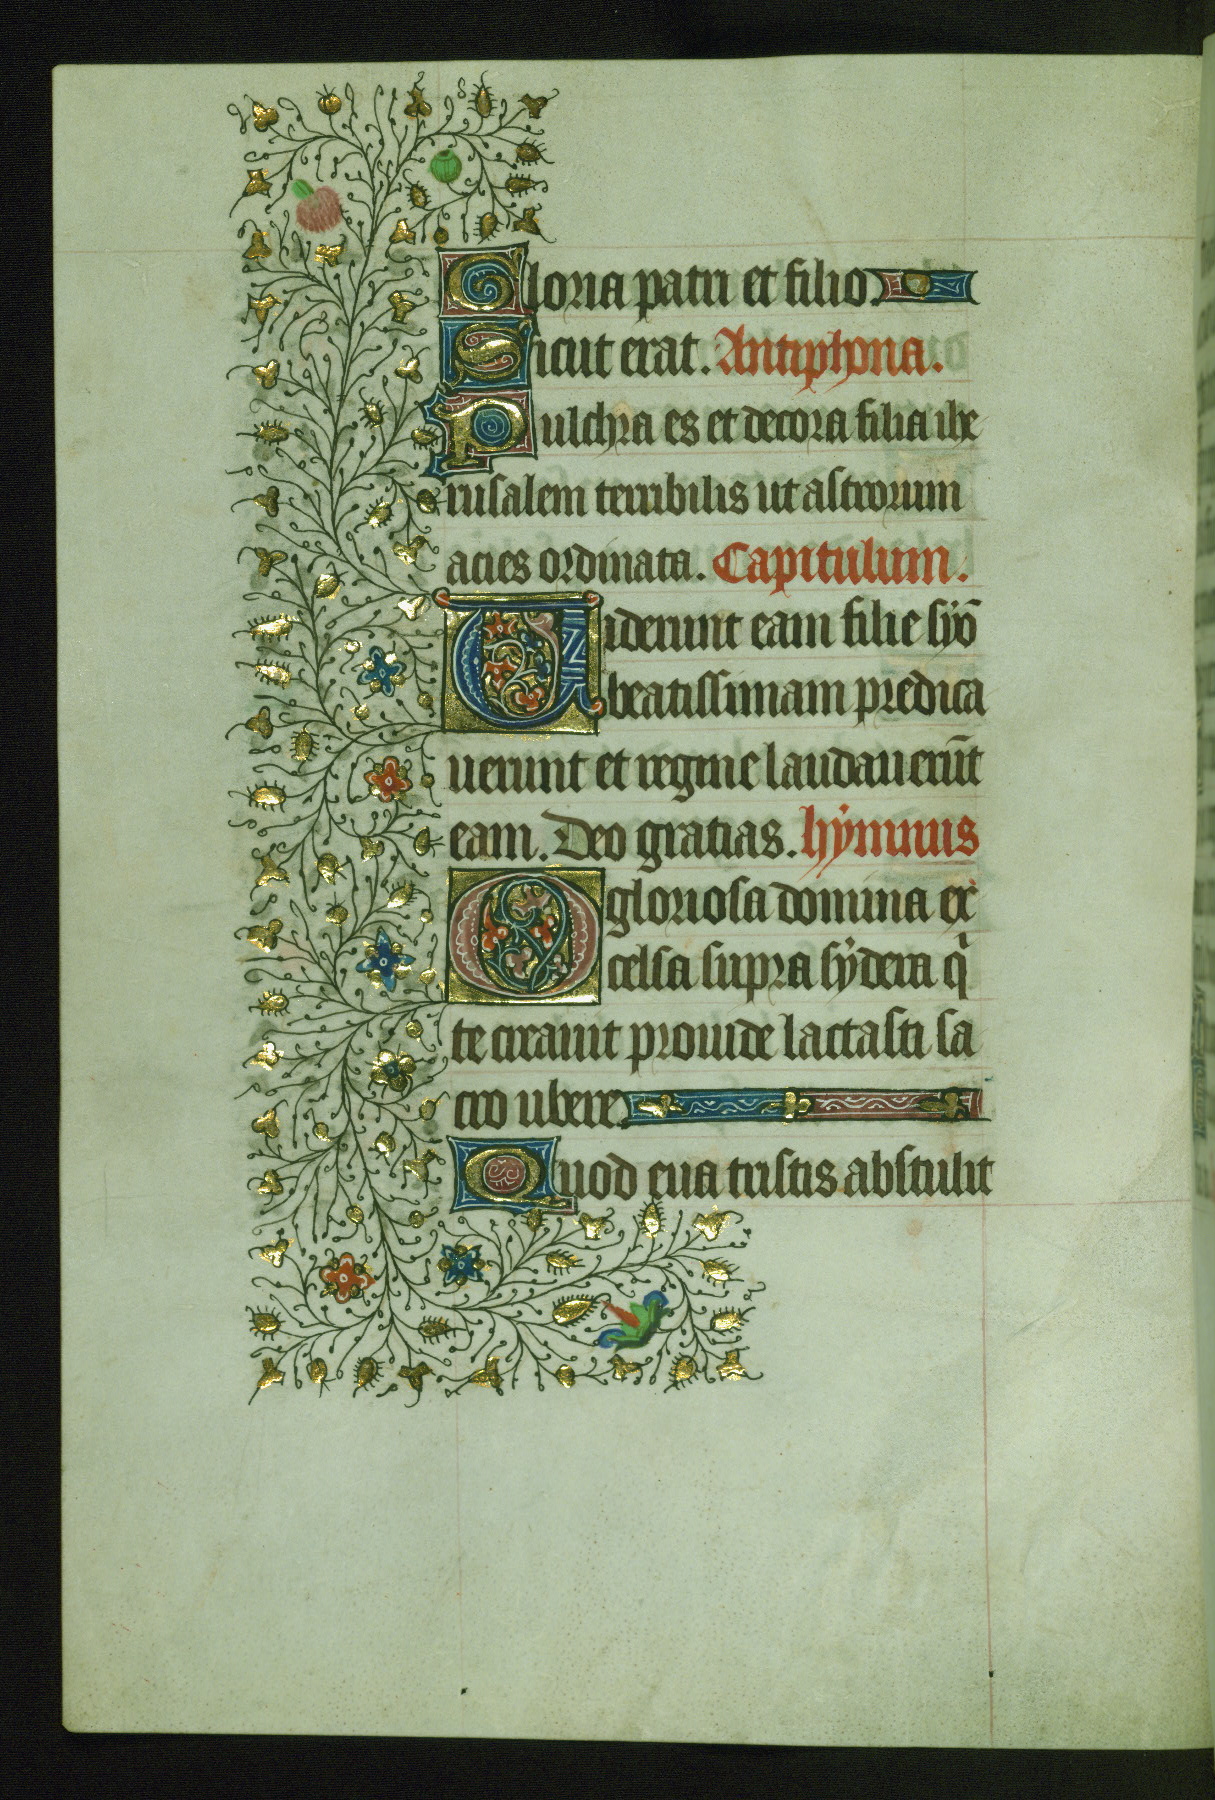 Gloria patri et filio.
Sicut erat. Antiphona.
Pulchra es et decora filia ihe
rusalem terribilis ut astrorum
acies ordinata. Capitulum.
Uiderunt eam filie syō
beatissimam predica
uerunt et regine laudauerūt
eam. Deo gratias. hymnus
O gloriosa domina ex
celsa supra sydera qͥ
te creauit prouide lactasti sa
cro ubere.
Quod eua tristis abstulit